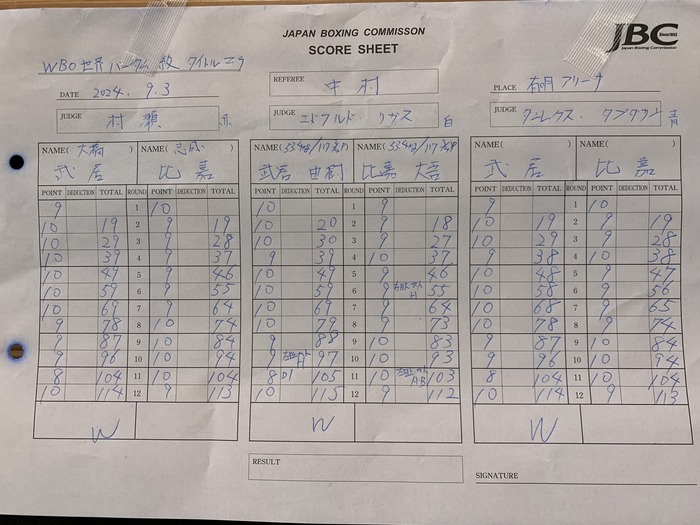 JAPAN BOXING COMMISSON
SCORE SHEET
JBC
Since1952
Japan Boxing Commission
WBO世界バンタム級タイトルマッチ
DATE 2024. 9.3
REFEREE 中村
PLACE 有明アリーナ
JUDGE 村瀬 赤
JUDGE 白
JUDGE 青
NAME( 大橋 ) NAME( 志成 ) NAME( ) NAME( ) NAME( ) NAME( )
武居 比嘉 武居 由樹 比嘉 大吾 武居 比嘉
POINT DEDUCTION TOTAL ROUND POINT DEDUCTION TOTAL POINT DEDUCTION TOTAL ROUND POINT DEDUCTION TOTAL POINT DEDUCTION TOTAL ROUND POINT DEDUCTION TOTAL
9 1 10 10 1 9 9 1 10
10 19 2 9 19 10 20 2 9 18 10 19 2 9 19
10 29 3 9 28 10 30 3 9 27 10 29 3 9 28
10 39 4 9 37 9 39 4 10 37 9 38 4 10 38
10 49 5 9 46 10 49 5 9 46 10 48 5 9 47
10 59 6 9 55 10 59 6 9 55 10 58 6 9 56
10 69 7 9 64 10 69 7 9 64 10 68 7 9 65
9 78 8 10 74 10 79 8 9 73 10 78 8 9 74
9 87 9 10 84 9 88 9 10 83 9 87 9 10 84
9 96 10 10 94 9 97 10 10 93 9 96 10 10 94
8 104 11 10 104 8 D1 105 11 10 103 8 104 11 10 104
10 114 12 9 113 10 115 12 9 112 10 114 12 9 113
W W W
RESULT
SIGNATURE